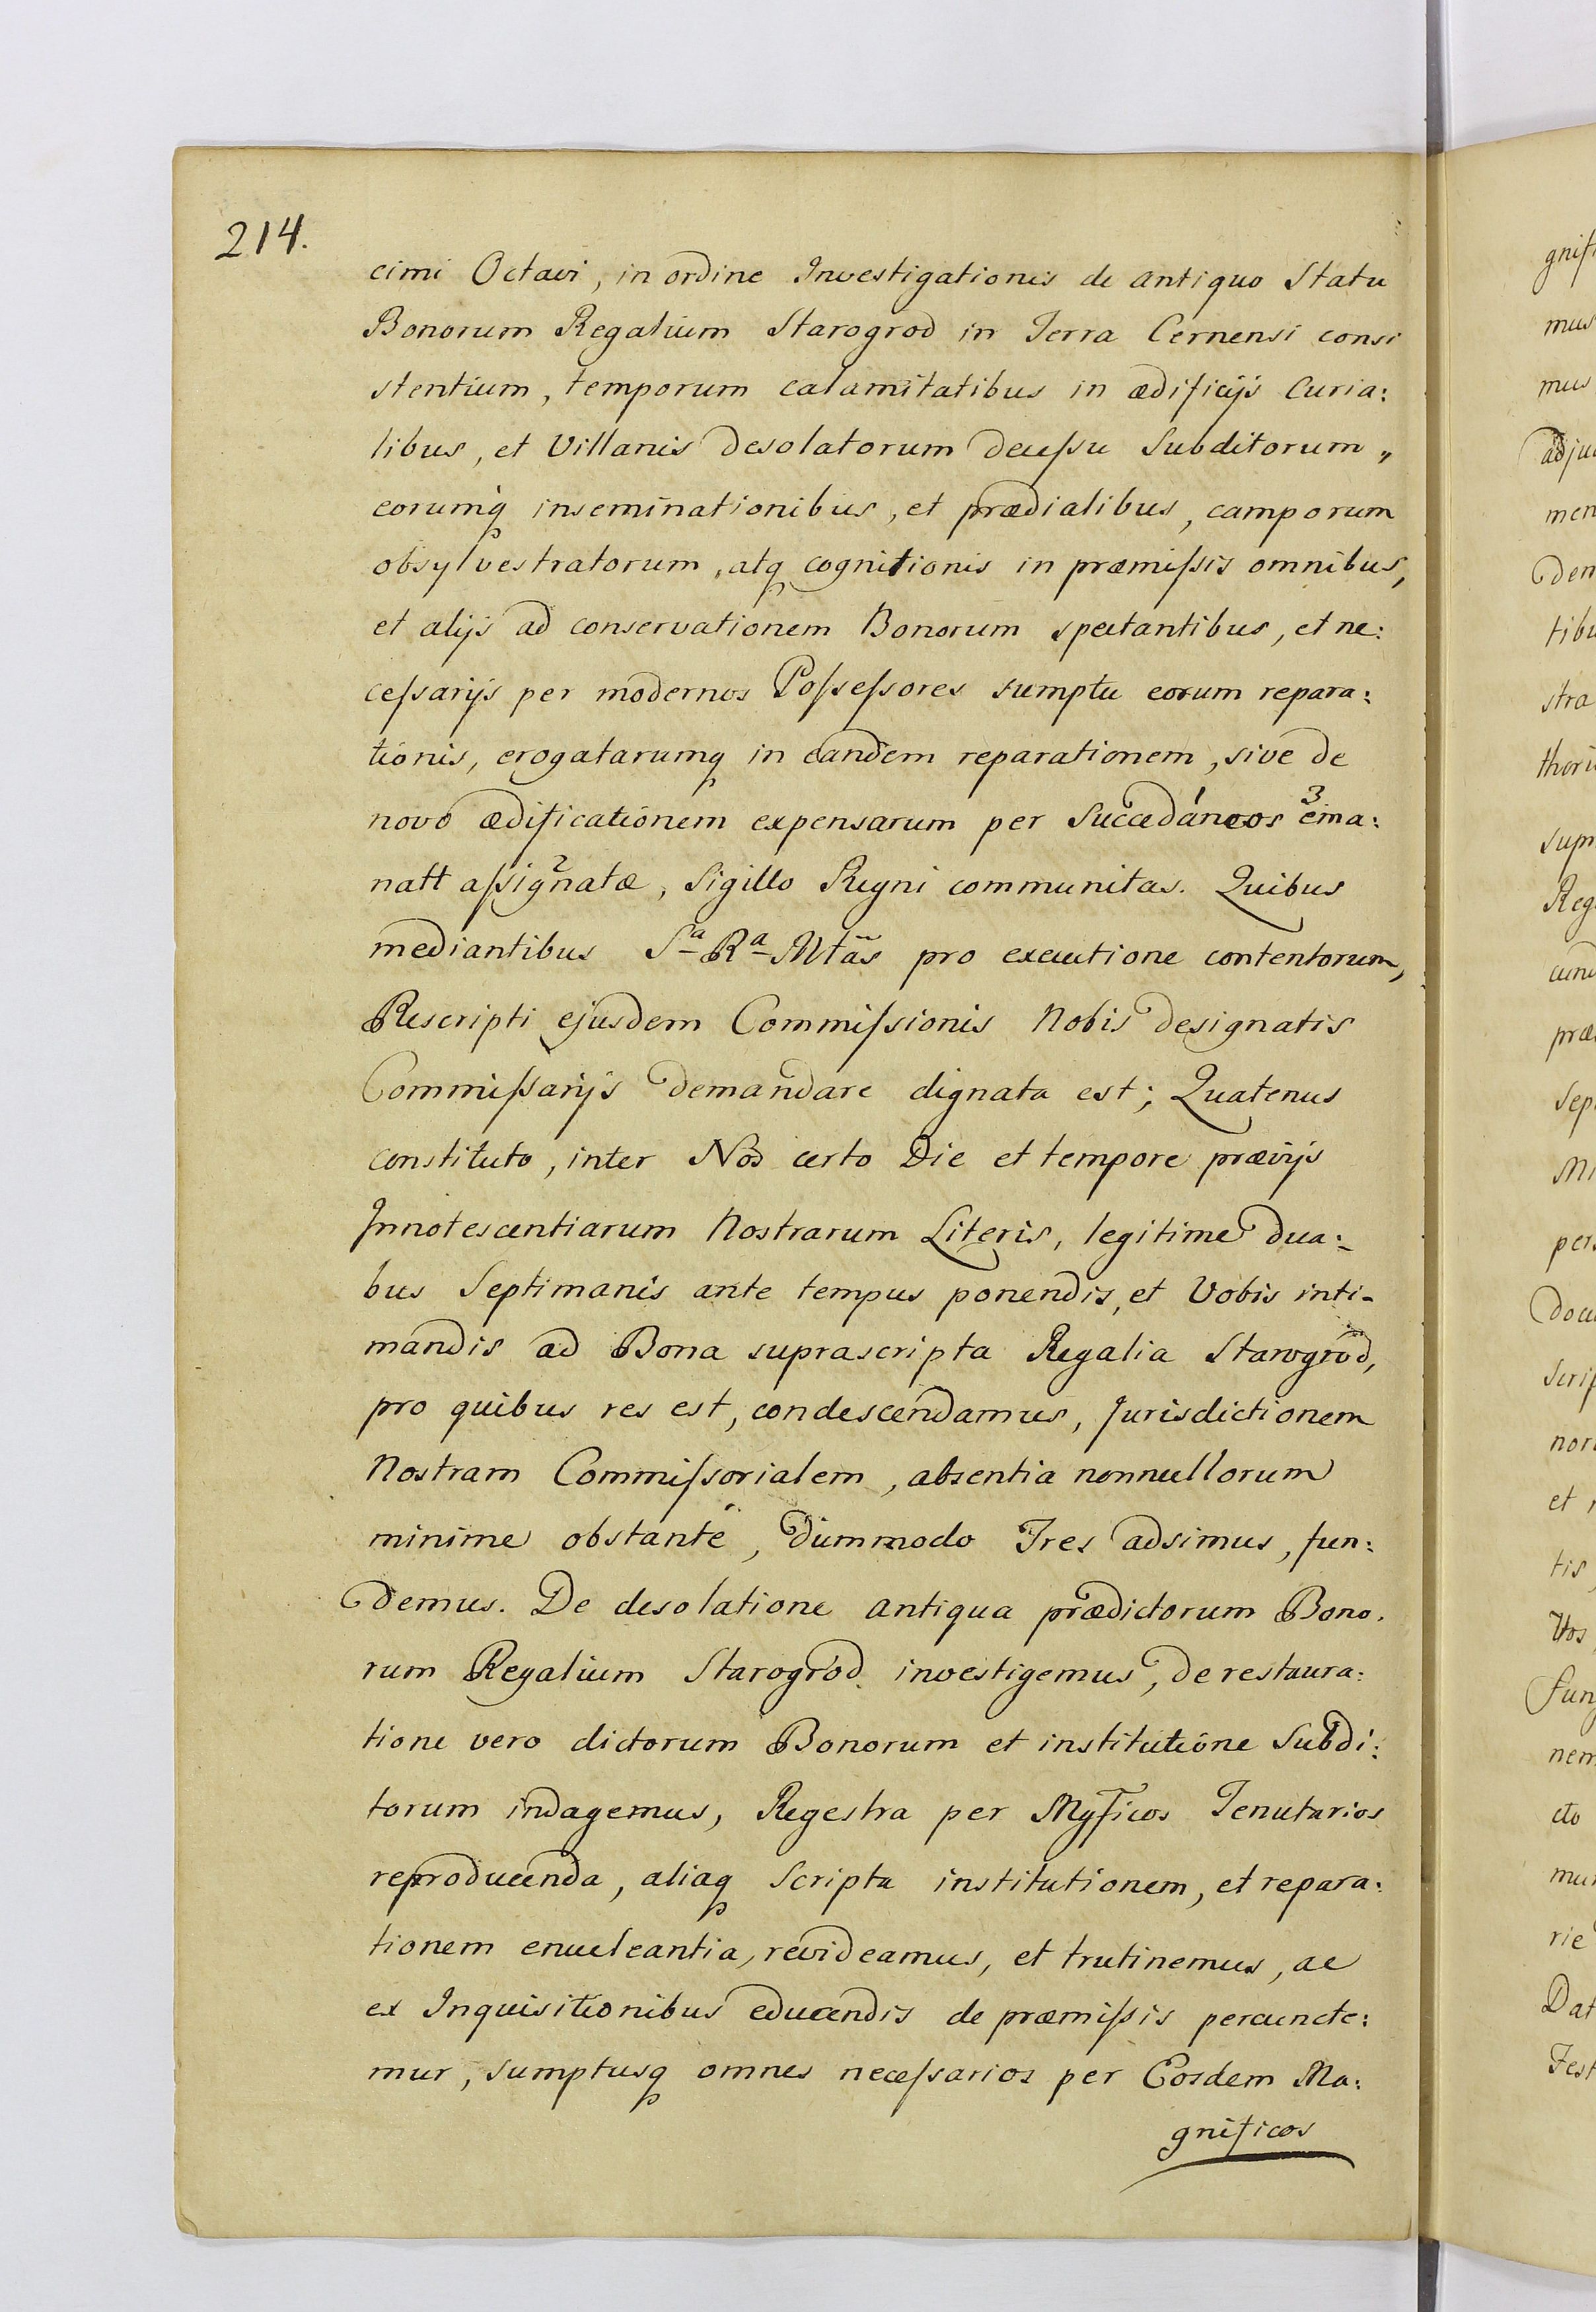 214.
cimi Octavi, in ordine Investigationis de antiquo Statu
Bonorum Regalium Starogrod in Terra Cernensi consi
stentium, temporum calamitatibus in ædificijs Curia:
libus, et Villanis desolatorum decessu Subditorum,,
eorumq́ inseminationibus, et prædialibus, camporum
obsylvestratorum, atq cognitionis in præmissis omnibus,
et alijs ad conservationem Bonorum spectantibus, et ne:
cessarijs per modernos Possessores sumptu eorum repara:
tionis, erogatarumq in eandem reparationem, sive de
novo ædificationem expensarum per Succedáneos 3 ema:
natt assig2natæ, Sigillo Regni communitas. Quibus
mediantibus Sª Rª Mtãs pro executione contentorum,
Rescripti ejusdem Commissionis Nobis designatis
Commissarijs demandare dignata est; Quatenus
constituto, inter Nos certo Die et tempore prævijs
Innotescentiarum Nostrarum Literis, legitime dua:
bus Septimanis ante tempus ponendis, et Vobis inti-
mandis ad Bona suprascripta Regalia Starogrod,
pro quibus res est, condescendamus, Jurisdictionem
Nostram Commissorialem, absentia nonnullorum
minime obstante, dummodo Tres adsimus, fun:
demus. De desolatione antiqua prædictorum Bono.
rum Regalium Starogrod investigemus, de restaura:
tione vero dictorum Bonorum et institutione Subdi:
torum indagemus, Regestra per Mgficos Tenutarios
reproducenda, aliaq Scripta institutionem, et repara:
tionem enucleantia, revideamus, et trutinemus, ac
ex Inquisitionibus educendis de præmissis percuncte:
mur, sumptusq omnes necessarios per Eosdem Ma:
gnificos
gnifi
mus
mus
adju
men
dem
tibu
stra
thori
supr
Reg
cund
præ
Sep
Mi
per
docu
Scrip
nor
et
tis,
Vos
fun
nem
cto
mur
rie
Dat
Fest